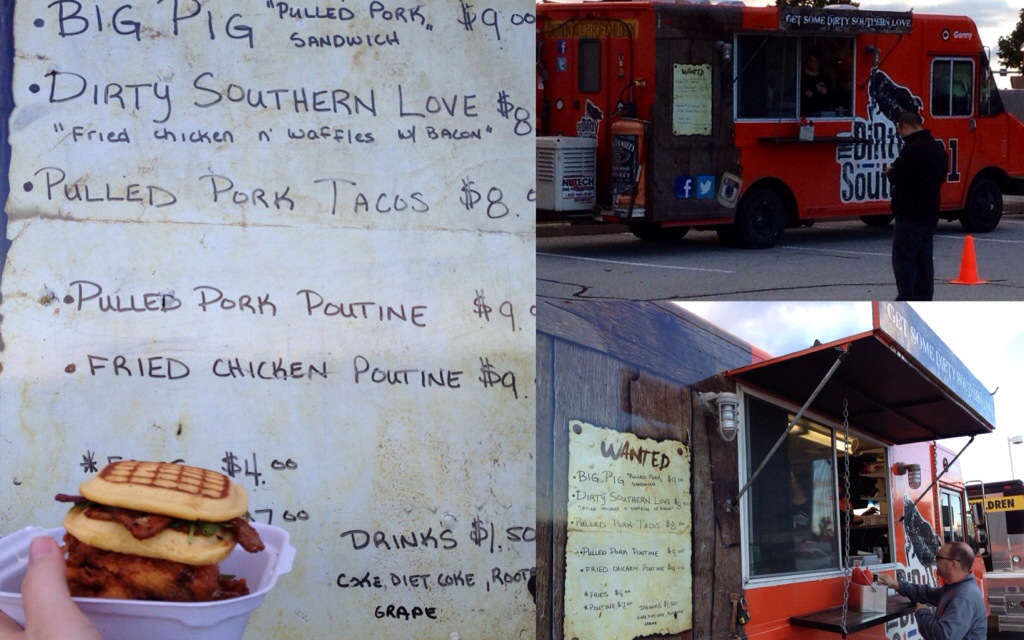 • BIG PIG "PULLED PORK" $9.00
SANDWICH
• DIRTY SOUTHERN LOVE $8
"Fried chicken n' waffles w/ BACON"
• PULLED PORK TACOS $8.
• PULLED PORK POUTINE $9.
• FRIED CHICKEN POUTINE $9.
* $4.00
7.00
DRINKS $1.50
COKE, DIET COKE, ROOT
GRAPE
GET SOME DIRTY SOUTHERN LOVE
Genny
WANTED
THE DIRTY
SOUTH
1
GET SOME DIRTY SOUTHERN
WANTED
• BIG PIG "PULLED PORK" $9.00
SANDWICH
• DIRTY SOUTHERN LOVE $8
"Fried chicken n' waffles w/ BACON"
• PULLED PORK TACOS $8.
• PULLED PORK POUTINE $9.
• FRIED CHICKEN POUTINE $9.
* FRIES $4.00
* POUTINE $7.00
DRINKS $1.50
GRAPE
DIR
LDREN